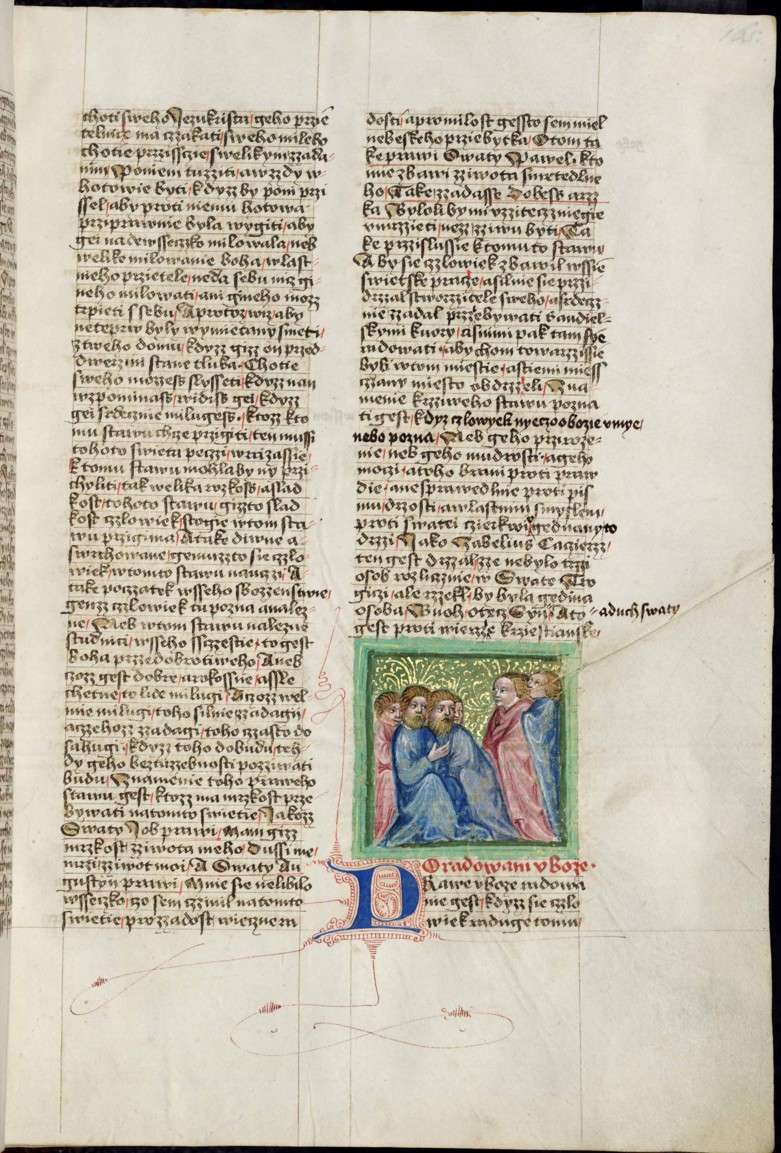 choti sweho Jezukrista / geho przie
telnie ma czakati / sweho mileho
chotie przissczie / s welikym zada-
nim / Po niem tuziti / a wzdy w-
hotowie byti / kdyz by po ni przi
ssel / aby proti niemu hotowa
przyprawnie byla wygiti / aby
gei nadewsseczko milowala / neb
welike milowanie boha / wlast-
nieho przietele / neda sebu nizgi-
neho milowati / ani gineho moz
trpieti s sebu / A protoz wiz / aby
nebyly wymietany smeti /
z tweho domu / kdyz giz on przed
dwerzmi stane tluka / Chotie
sweho mozess slysseti / kdyz nan
wzpominass / widiss gei / kdyz
gei srdecznie milugess / Ktoz k to
mu stawu chce przigiti / ten muss
tohoto swieta peczi / wrci zassie /
k tomu stawu mohla by ny przi-
chyliti / tak welika rozkoss / a slad
kost tohoto stawu / gizto slad
kost czlowiek stogie w tom sta-
wu przigima / A take diwne a-
swrchowane / gemuzto sie czlo
wiek / w tomto stawu nauczi / A
take poczatek wsseho sbozenstwie /
genz czlowiek tu pozna a nalez-
ne / Neb w tom stawu nalezne
studnici / wsseho sczestie / to gest
boha przedobrotiweho / A neb
czoz gest dobre / a rokossne / a ssle
chetne / to lide milugi / A czoz wel
mie milugi / toho silnie zadagi /
a czehoz zadagi / toho czasto do
sahugi / kdyz toho dobudu / teh-
dy geho bez tuzebnosti pozywati
budu / Znamenie toho praweho
stawu gest / ktoz ma mrzkost prze
bywati na tomto swietie / Jakoz
Swaty Job prawi / Mam giz
mrzkost ziwota meho / Dussi me /
mrzi ziwot moi / A Swaty Au
gustyn prawi / Mnie sie nelibilo
wsseczko / czo sem czinil na tomto
swietie / pro zadost wieczne ra
dosti / a pro milost gessto sem miel
nebeskeho prziebytka / O tom ta
ke prawi Swaty Pawel / kto
mie zbawi ziwota smrtedlne
ho / Take zadasse Tobess arz
ka / Bylo li by mi uzitecznegie
umrzieti / nez ziwu byti / Ta
ke przislussie k tomuto stawu
Aby sie czlowiek zbawil wssie
swietske pracze / a silnie sie przi
drzal stworzitele sweho / a srdecz
nie zadal przebywati s andiel-
skymi kuory / a s nimi pak tam sye
radowati / aby chom towarzissie
byli w tom miestie / a s tiemi miess
czany miesto obdrzeli / Zna
menie krziweho stawu pozna
ti gest / kdyz czlowyek nyeczo o bozie vmye /
nebo pozna / Neb geho przirozie-
nie / neb geho mudrosti / a geho
moczi / a toho brani proti praw
die / a nesprawedlnie proti pis
mu drzosti / a wlastnim smyslem /
proti swatei czierkwi gednany to
drzi / Jako Sabelius Caczierz /
ten gest drzal / ze nebylo trzi
osob rozlicznie / w Swate Tro
gici / ale rzekl / by byla gedina
osoba / Buoh / otecz Syn / A to = a duch swaty
gest proti wierze krziestianske /
O radowani v boze.
Prawe v boze radowa
nie gest / kdyz sie czlo
wiek raduge tomu